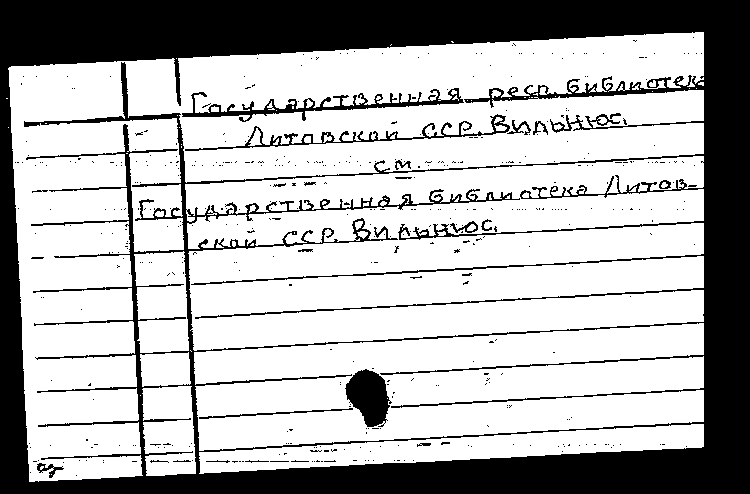 Государственная респ. библиотека
Литовской ССР. Вильнюс.
см.
Государственная библиотека Литов-
ской ССР. Вильнюс.